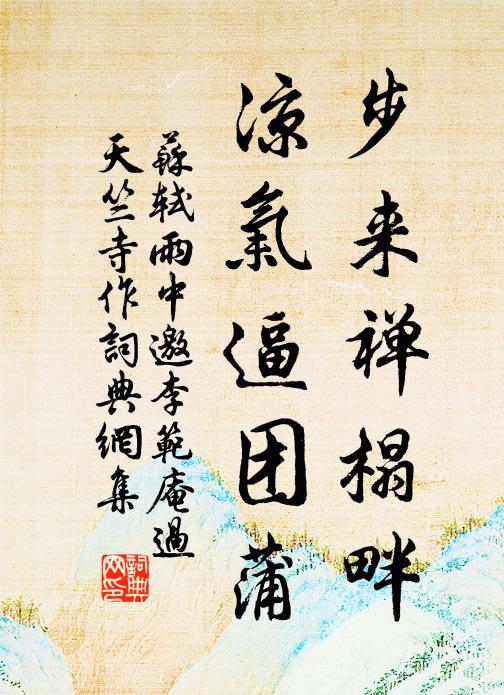 步来禅榻畔
凉氣逼团蒲
蘇轼雨中邀李範庵過
天竺寺作詞典網集
詞典网印